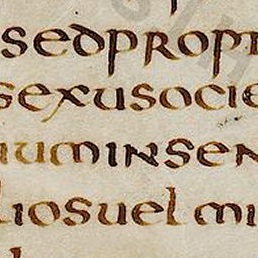 sedpropt
sexusocie
iuminsen
liosuelmi